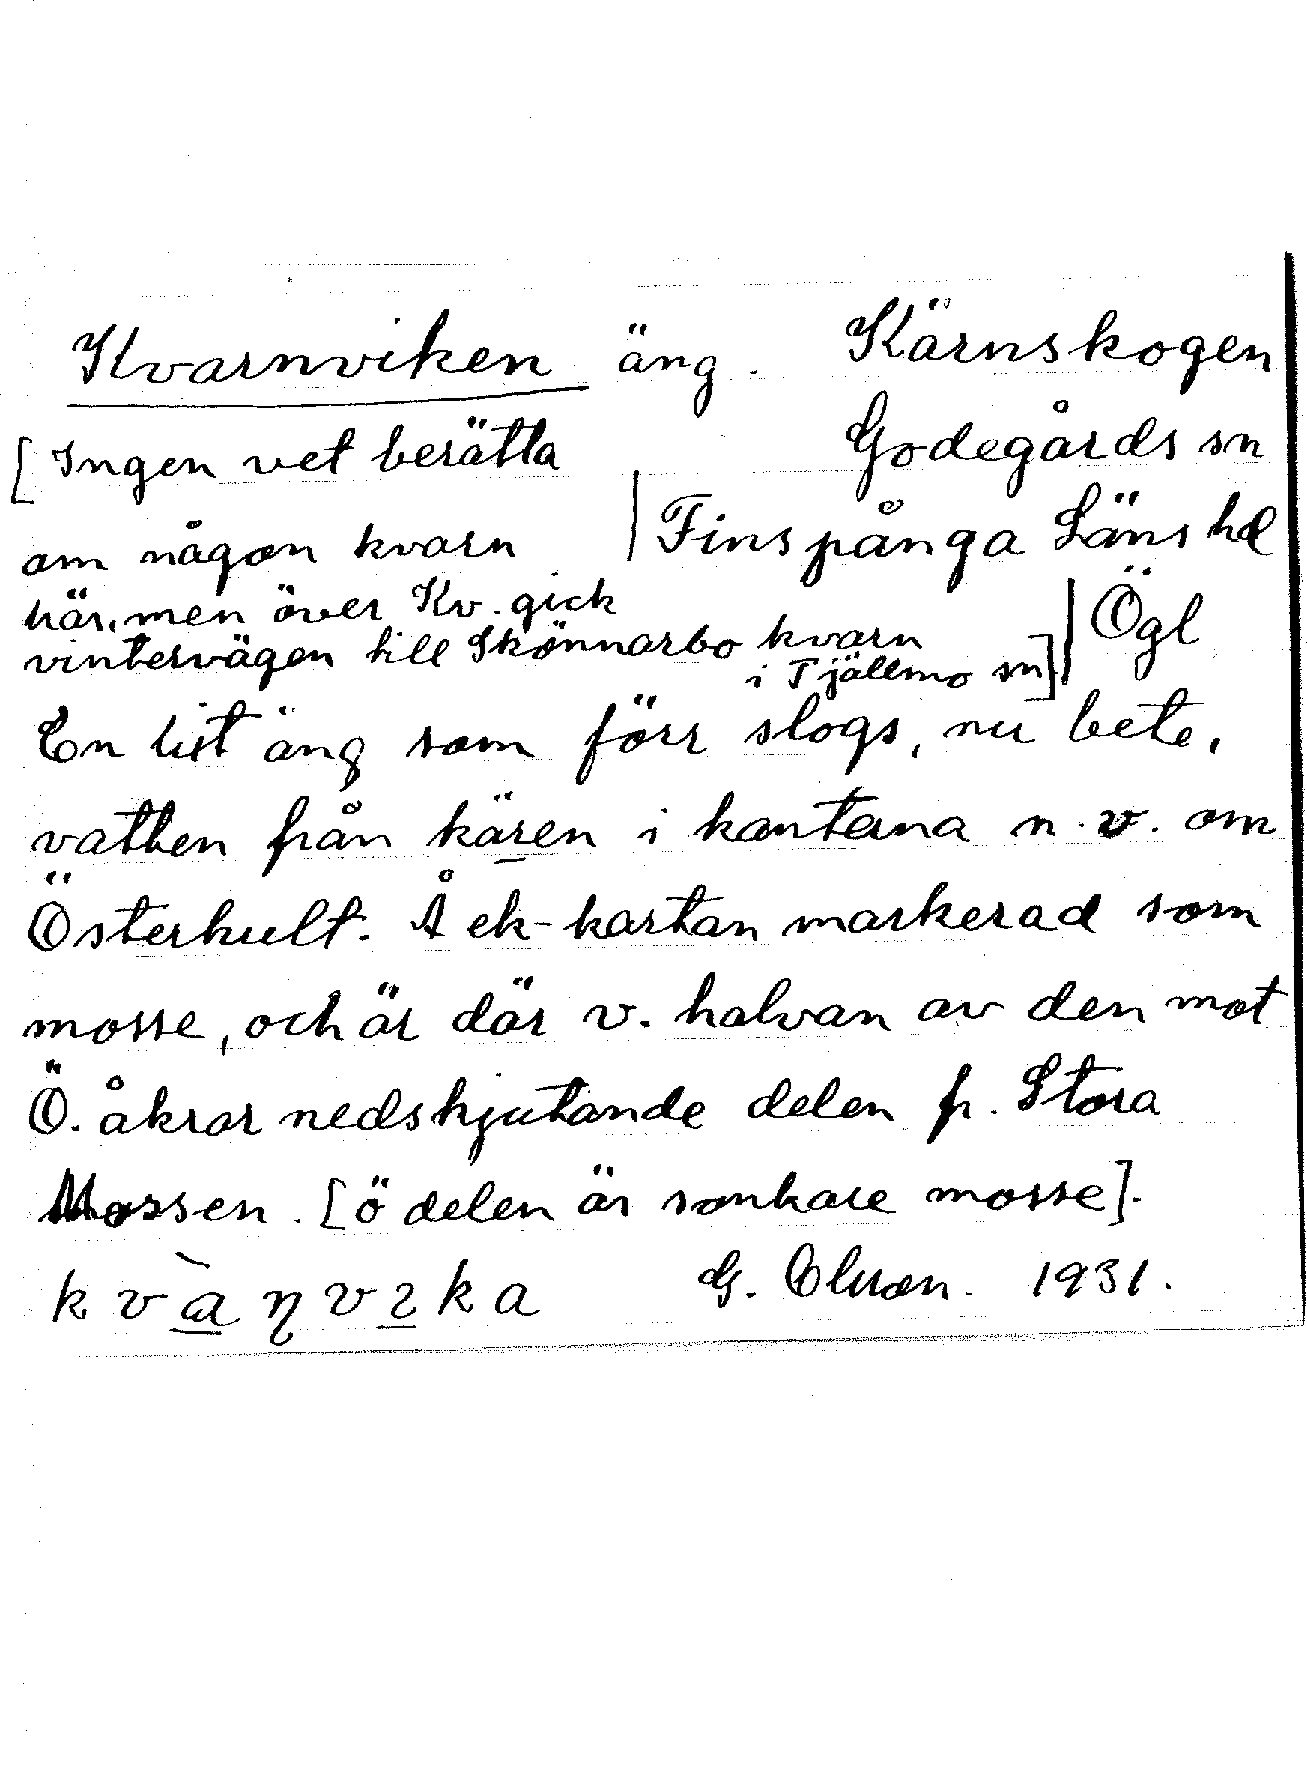 Kvarnviken äng. Kärnskogen
[Ingen vet berätta Godegårds sn
om någon kvarn Finspånga Läns hd
här, men över Kv. gick Ögl
vintervägen till Skönnarbo kvarn
i Tjällmo sn]
En lit äng som förr slogs, nu bete,
vatten från kären i kanterna n.v. om
Österhult. Å ek-kartan markerad som
mosse, och är där v. halvan av den mot
Ö. åkrar nedskjutande delen fr. Stora
Mossen. [ö delen är sankare mosse].
G. Olson. 1931.